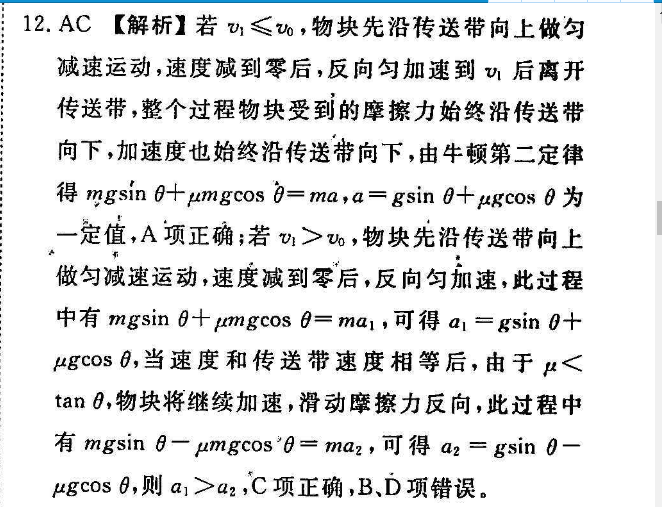 12. AC 【解析】若 v₁≤v₀,物块先沿传送带向上做匀
减速运动,速度减到零后,反向匀加速到 v₁ 后离开
传送带,整个过程物块受到的摩擦力始终沿传送带
向下,加速度也始终沿传送带向下,由牛顿第二定律
得 mgsin θ+μmgcos θ=ma,a=gsin θ+μgcos θ 为
一定值,A 项正确;若 v₁>v₀,物块先沿传送带向上
做匀减速运动,速度减到零后,反向匀加速,此过程
中有 mgsin θ+μmgcos θ=ma₁,可得 a₁=gsin θ+
μgcos θ,当速度和传送带速度相等后,由于 μ<
tan θ,物块将继续加速,滑动摩擦力反向,此过程中
有 mgsin θ-μmgcos θ=ma₂,可得 a₂=gsin θ-
μgcos θ,则 a₁>a₂,C 项正确,B、D 项错误。